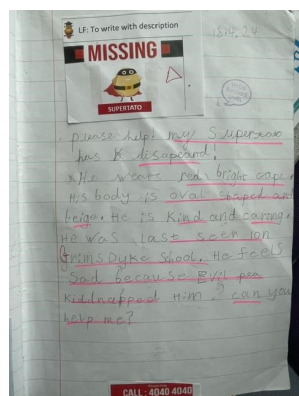 LF: To write with description
15.4.24
MISSING
SUPERTATO
please help! my Supertato
has disapeard.
He wears red bright cape.
His body is oval shaped and
beige. He is kind and caring.
He was last seen ion
Grimsdyke School. He feels
Sad because Evil pea
kiddnapped Him. can you
help me?
CALL : 4040 4040